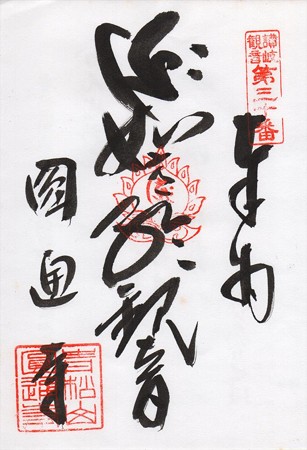 讃岐
観音
第三
番
奉納
如意輪観音
圓通寺
青松山
圓通寺